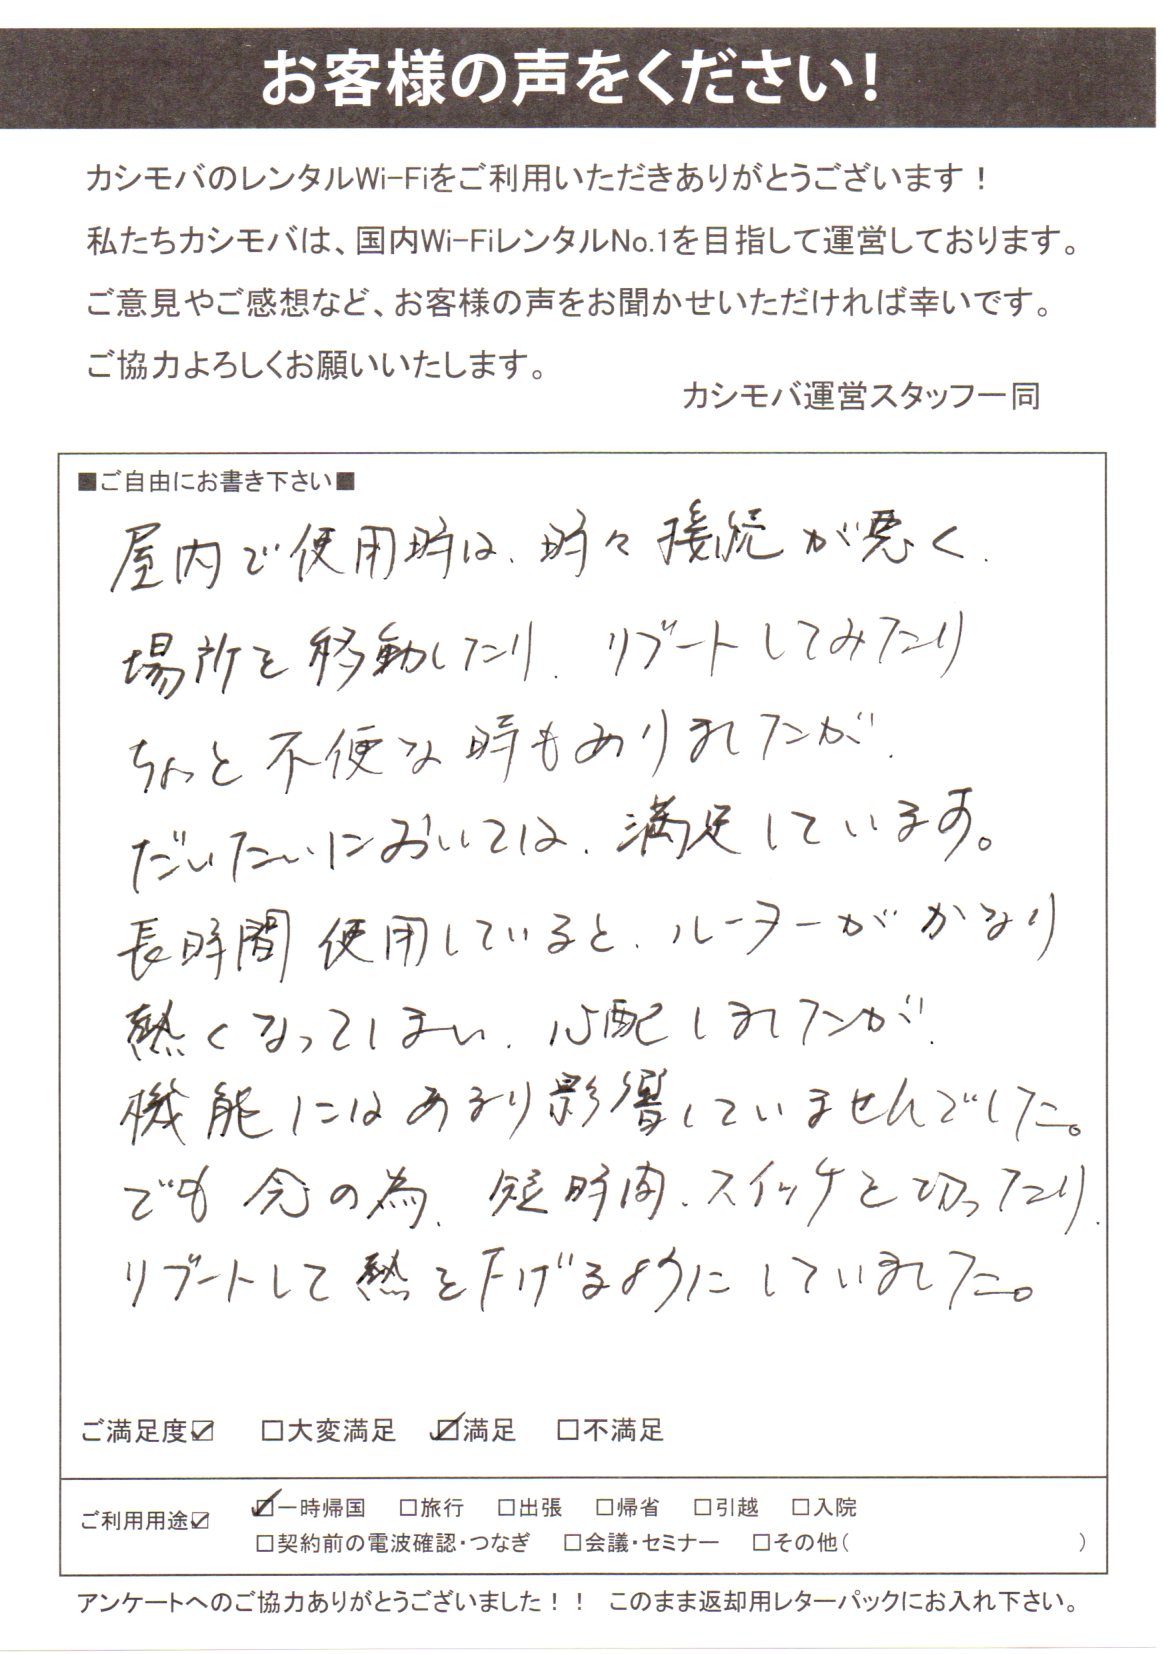 お客様の声をください!
カシモバのレンタルWi-Fiをご利用いただきありがとうございます！
私たちカシモバは、国内Wi-FiレンタルNo.1を目指して運営しております。
ご意見やご感想など、お客様の声をお聞かせいただければ幸いです。
ご協力よろしくお願いいたします。
カシモバ運営スタッフ一同
■ご自由にお書き下さい■
屋内で使用時は、時々接続が悪く、
場所を移動したり、リブートしてみたり
ちょっと不便な時もありましたが、
だいたいにおいては、満足しています。
長時間使用していると、ルーターがかなり
熱くなってしまい、心配しましたが、
機能にはあまり影響していませんでした。
でも念の為、短時間、スイッチを切ったり、
リブートして熱を下げるようにしていました。
ご満足度☑ □大変満足 ☑満足 □不満足
ご利用用途☑ ☑一時帰国 □旅行 □出張 □帰省 □引越 □入院
□契約前の電波確認・つなぎ □会議・セミナー □その他( )
アンケートへのご協力ありがとうございました！！ このまま返却用レターパックにお入れ下さい。